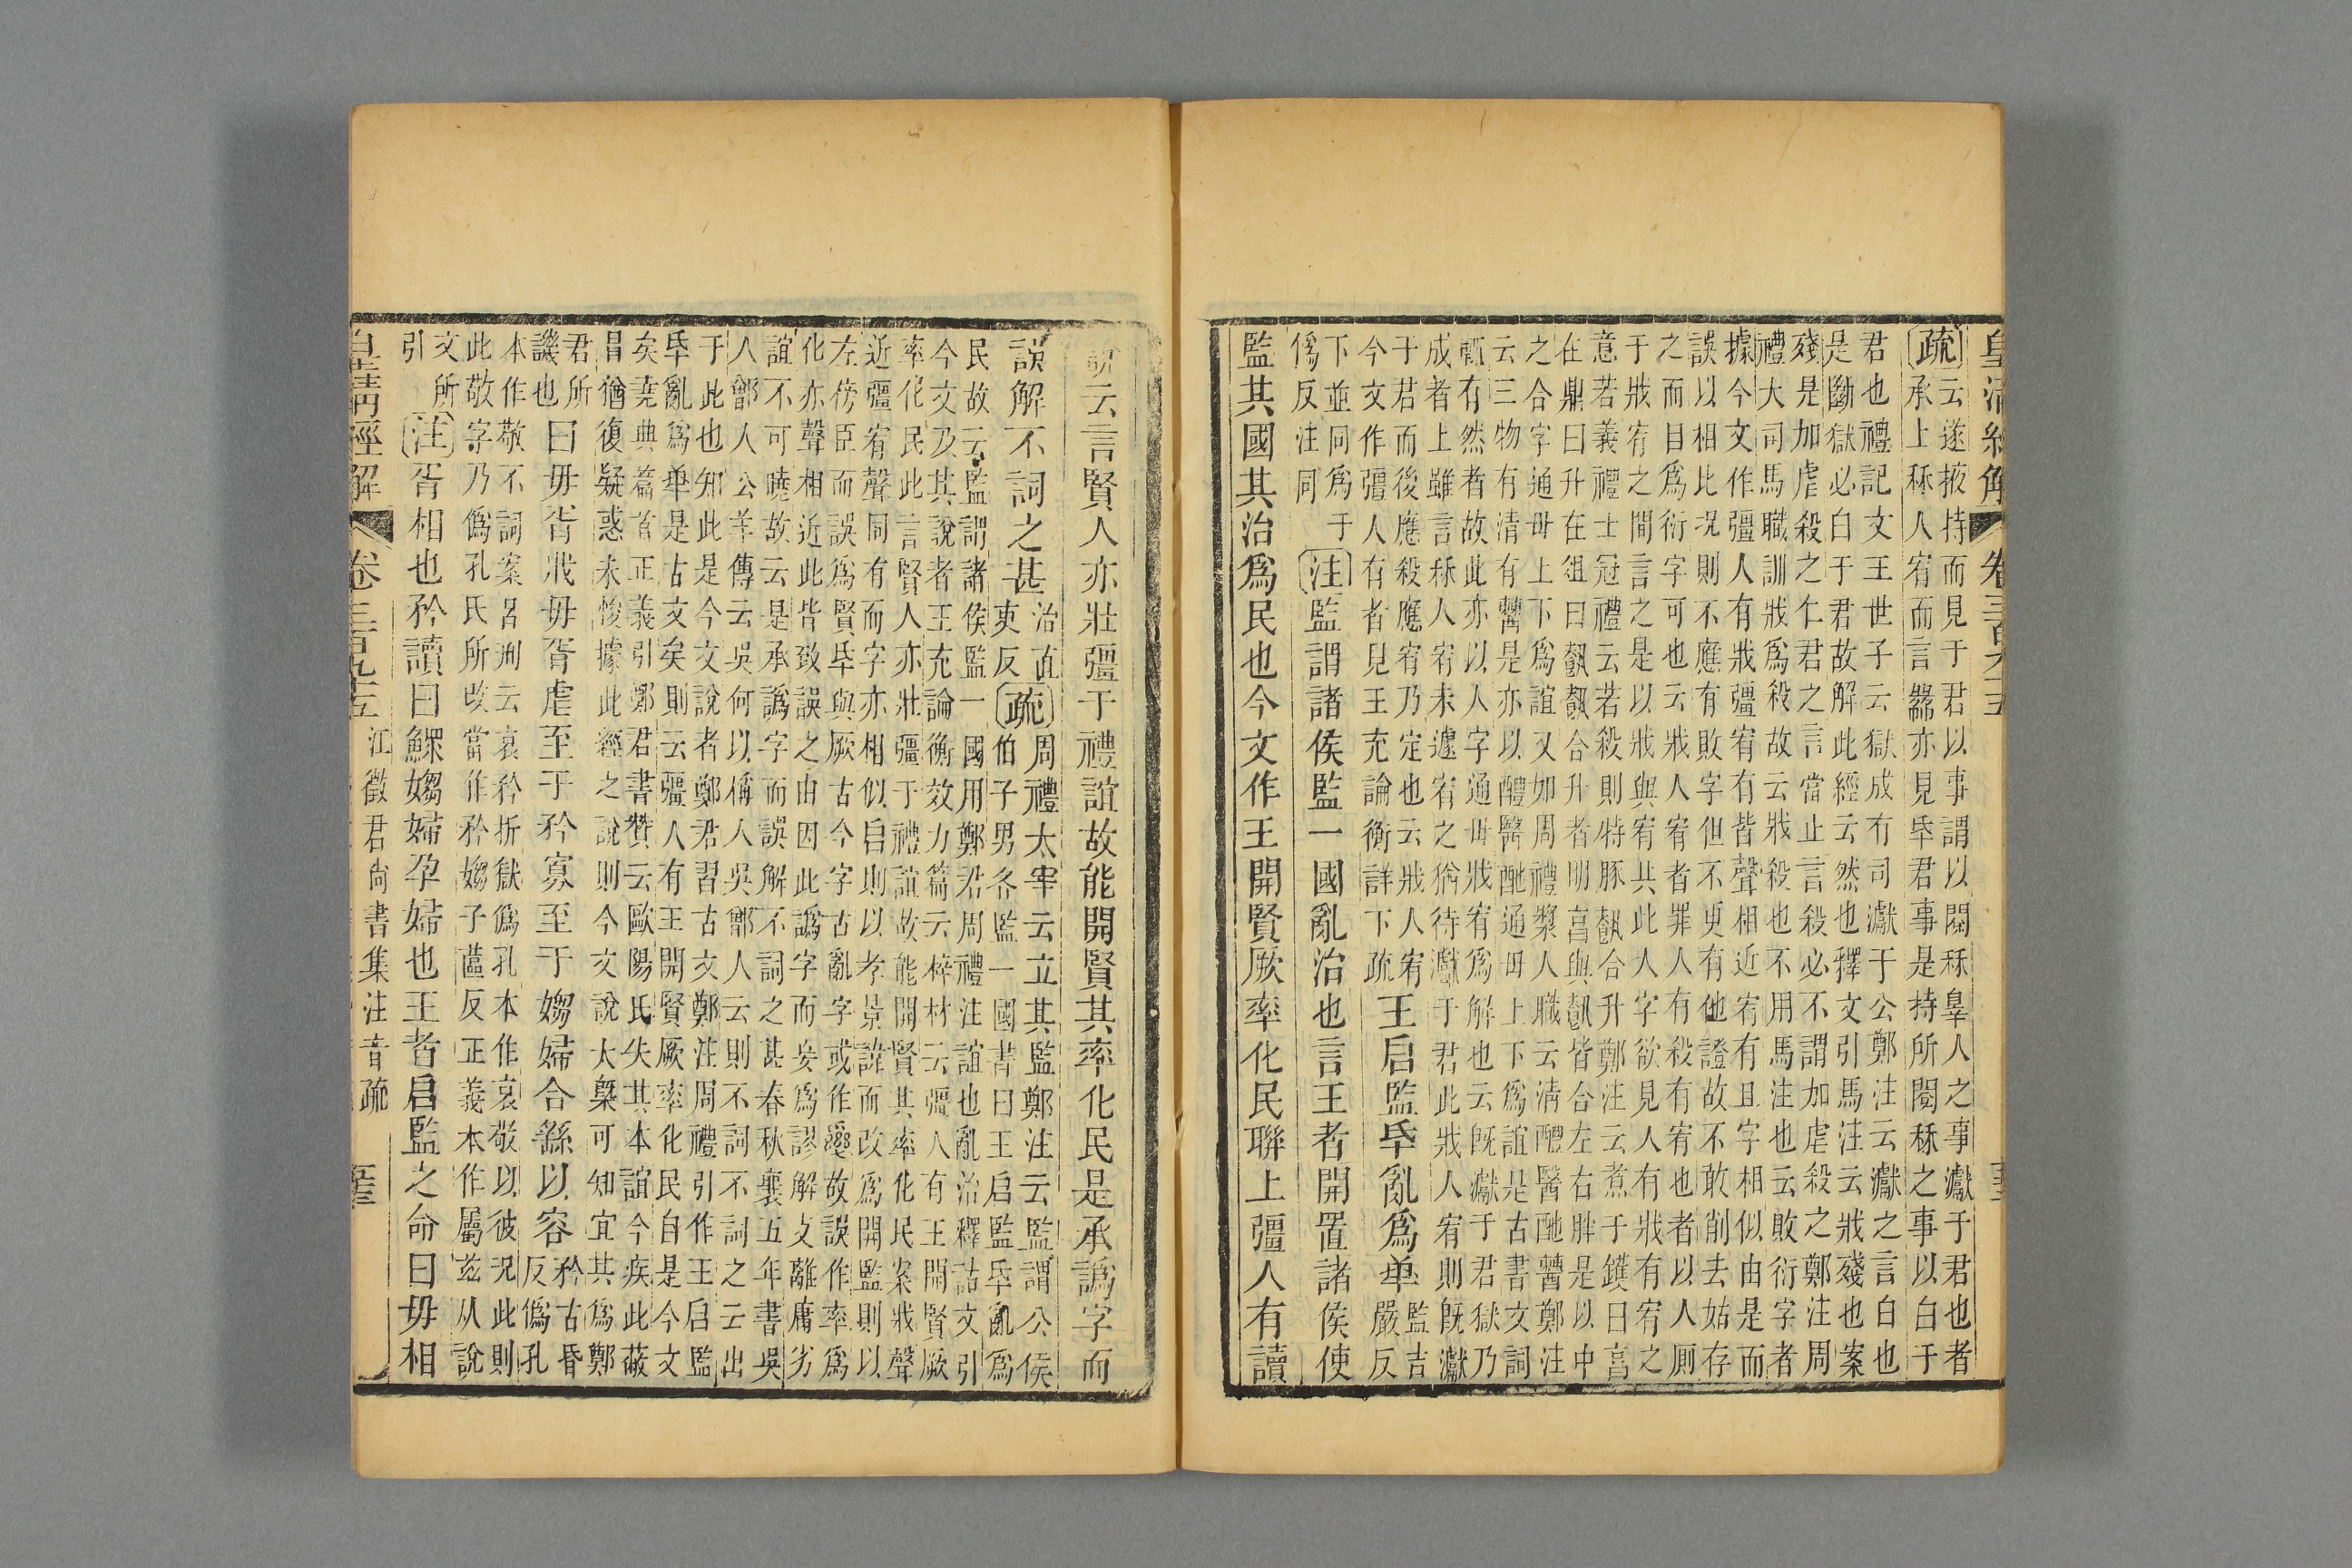 皇清經解 卷三百九十五
疏
云遂掖持而見于君以事謂以閱秝辠人之事讞于君也者
承上秝人宥而言繇亦見氒君事是持所閱秝之事以白于
君也禮記文王世子云獄成有司讞于公鄭注云讞之言白也
是斷獄必白于君故解此經云然也釋文引馬注云戕殘也案
殘是加虐殺之仁君之言當止言殺必不謂加虐殺之鄭注周
禮大司馬職訓戕爲殺故云戕殺也不用馬注也云敗衍字者
據今文作彊人有戕彊宥有皆聲相近宥有且字相似由是而
誤以相比況則不應有敗字但不更有他證故不敢削去姑存
之而目爲衍字可也云戕人宥者罪人有殺有宥也者以人厠
于戕宥之間言之是以戕與宥共此人字欲見人有戕有宥之
意若義禮士冠禮云若殺則特豚合升鄭注云煮于鑊曰亯
在鼎曰升在俎曰合升者明亯與皆合左右胖是以中
之合字通毌上下爲誼又如周禮漿人職云清醴醫酏䣼鄭注
云三物有清有䣼是亦以醴醫酏通毌上下爲誼是古書文詞
甎有然者故此亦以人字通毌戕宥爲解也云旣讞于君獄乃
成者上雖言秝人宥未遽宥之猶待讞于君此戕人宥則旣讞
于君而後應殺應宥乃定也云戕人宥
今文作彊人有者見王充論衡詳下疏
王启監氒亂爲 監吉
嚴反
下並同爲于
僞反注同
注 監謂諸侯監一國亂治也言王者開置諸侯使
監其國其治爲民也今文作王開賢厥率化民聯上彊人有讀
說云言賢人亦壯彊于禮誼故能開賢其率化民是承譌字而
誤解不詞之甚 治直
吏反
疏
周禮太宰云立其監鄭注云監謂公侯
伯子男各監一國書曰王启監氒亂爲
民故云監謂諸侯監一國用鄭君周禮注誼也亂治釋詁文引
今文及其說者王充論衡效力篇云梓材云彊人有王開賢厥
率化民此言賢人亦壯彊于禮誼故能開賢其率化民案戕聲
近彊宥聲同有而字亦相似启則以孝景諱而改爲開監則以
左傍臣而誤爲賢氒與厥古今字古亂字或作故誤作率爲
化亦聲相近此皆致誤之由因此譌字而妄爲謬解文離庸劣
誼不可曉故云是承譌字而誤解不詞之甚春秋襄五年書吳
人鄫人公羊傳云吳何以稱人吳鄫人云則不詞不詞之云出
于此也知此是今文說者鄭君習古文鄭注周禮引作王启監
氒亂爲是古文矣則云彊人有王開賢厥率化民自是今文
矣堯典篇首正義引鄭君書贊云歐陽氏失其本誼今疾此蔽
冒猶復疑惑未悛據此經之說則今文說大㮣可知宜其爲鄭
君所
譏也
曰毋胥戕毋胥虐至于矜寡至于媰婦合繇以容 矜古昏
反僞孔
本作敬不詞案呂刑云哀矜折獄僞孔本作哀敬以彼況此則
此敬字乃僞孔氏所改當作矜媰子蘆反正義本作屬兹从說
文所
引
注 胥相也矜讀曰鰥媰婦孕婦也王者启監之命曰毋相
皇清經解 卷三百九十五 江徵君尙書集注音疏